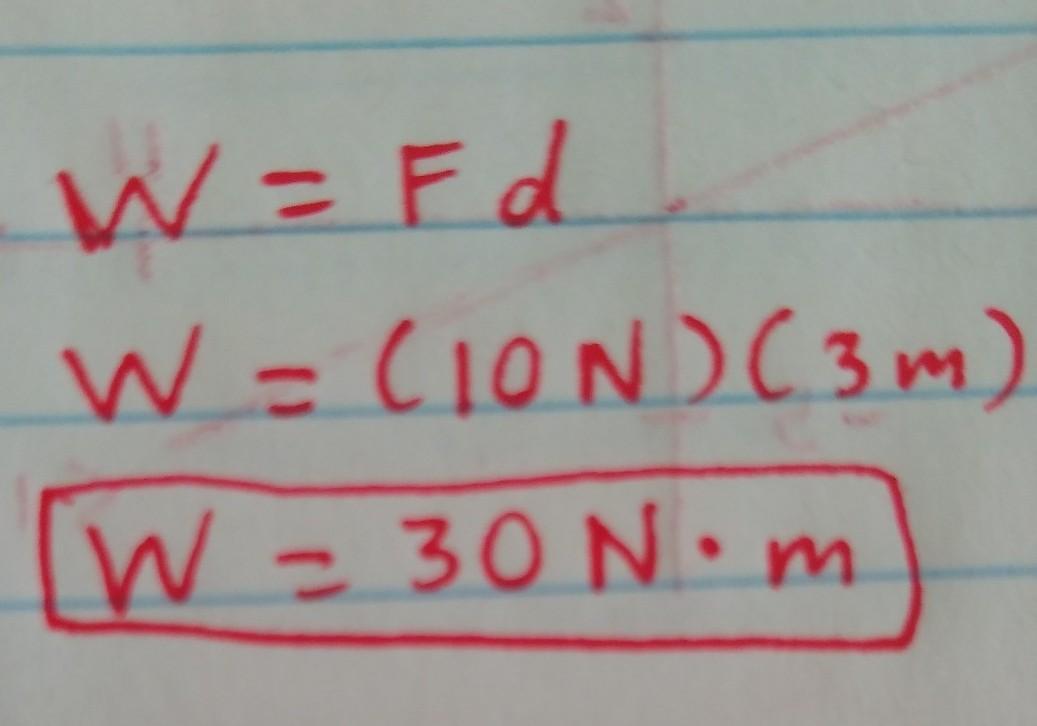 W = F d
W = (10 N)(3 m)
W = 30 N · m